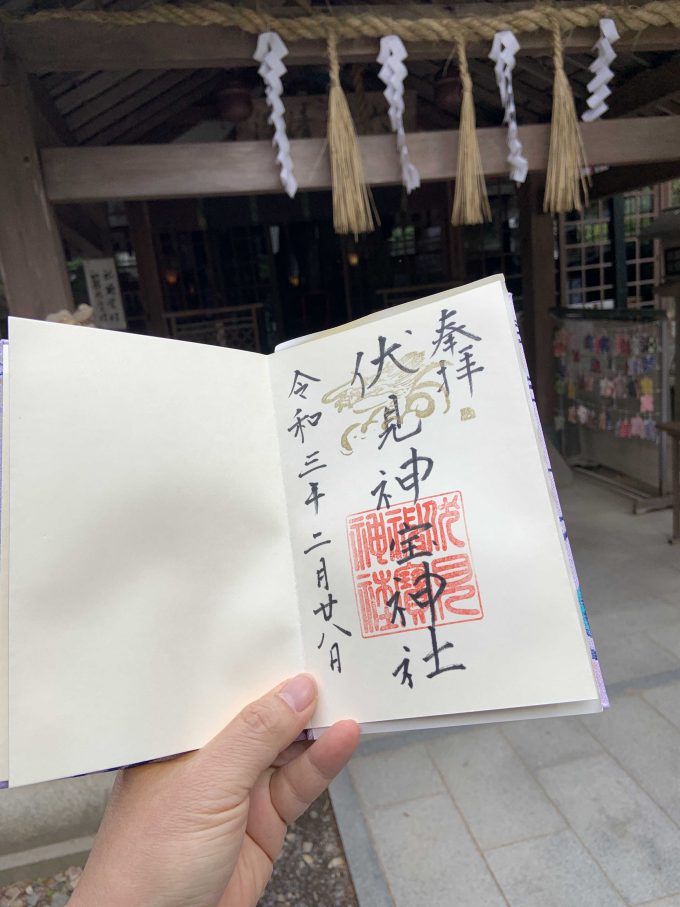 奉拝
伏見神宝神社
伏見
神寶
神社
令和三年二月廿八日